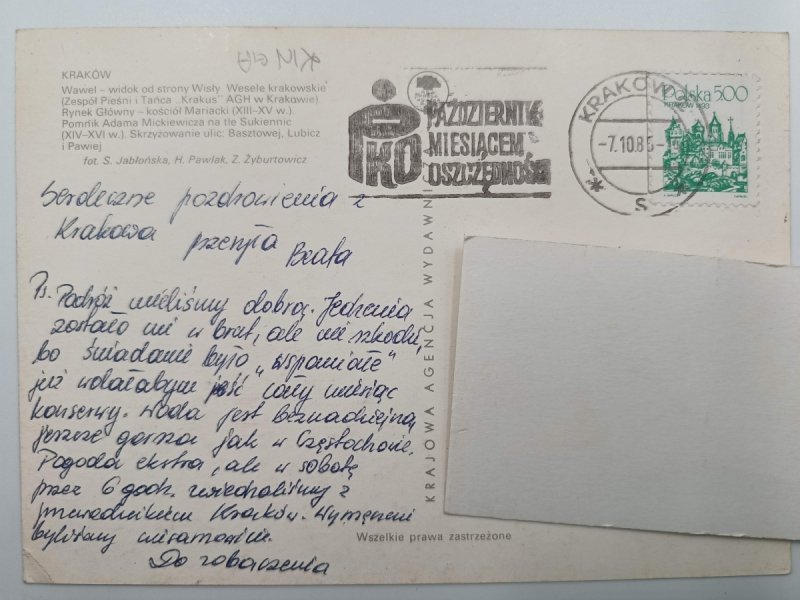 KINGA
KRAKÓW
Wawel – widok od strony Wisły. Wesele krakowskie
(Zespół Pieśni i Tańca „Krakus" AGH w Krakowie).
Rynek Główny – kościół Mariacki (XIII–XV w.).
Pomnik Adama Mickiewicza na tle Sukiennic
(XIV–XVI w.). Skrzyżowanie ulic: Basztowej, Lubicz
i Pawiej
fot. S. Jabłońska, H. Pawlak, Z. Żyburtowicz
PKO
PAŹDZIERNIK
MIESIĄCEM
OSZCZĘDNOŚCI
KRAKÓW
-7.10.85-
S
Polska 5.00
KRAKÓW 1493
Serdeczne pozdrowienia z
Krakowa przesyła
Beata
Ps. Podróż mieliśmy dobrą. Jedzenia
zostało mi w brut, ale nie szkodzi,
bo śniadanie było „wspaniałe"
już wolałabym jeść cały miesiąc
konserwy. Woda jest beznadziejna,
jeszcze gorsza jak w Częstochowie.
Pogoda ekstra, ale w sobotę
przez 6 godz. zwiedzaliśmy z
przewodnikiem Kraków. Wymęczeni
byliśmy niesamowicie.
Do zobaczenia
KRAJOWA AGENCJA WYDAWNI
Wszelkie prawa zastrzeżone